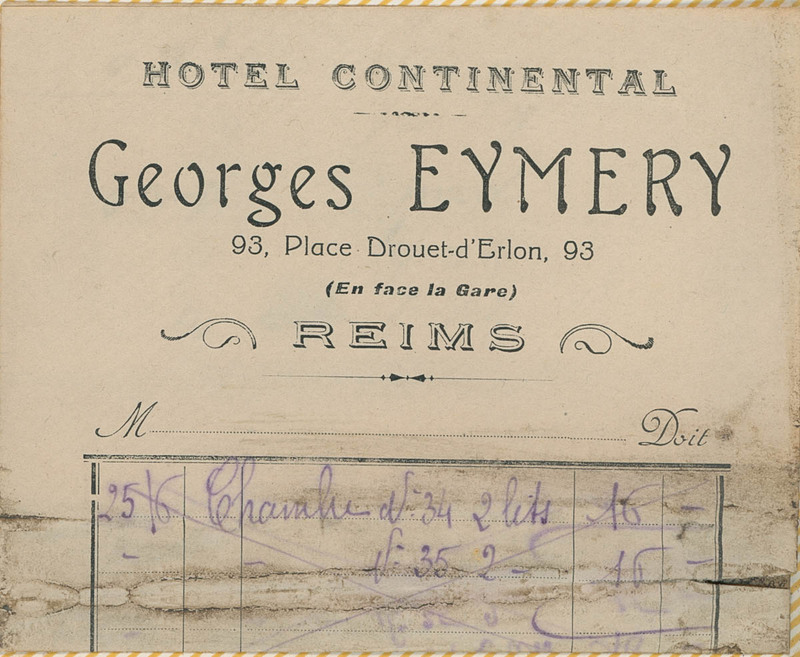 HOTEL CONTINENTAL
Georges EYMERY
93, Place Drouet-d'Erlon, 93
(En face la Gare)
REIMS
M Doit
25/6 Chambre N° 34 2 lits 16 -
- - N° 35 2 - 16 -